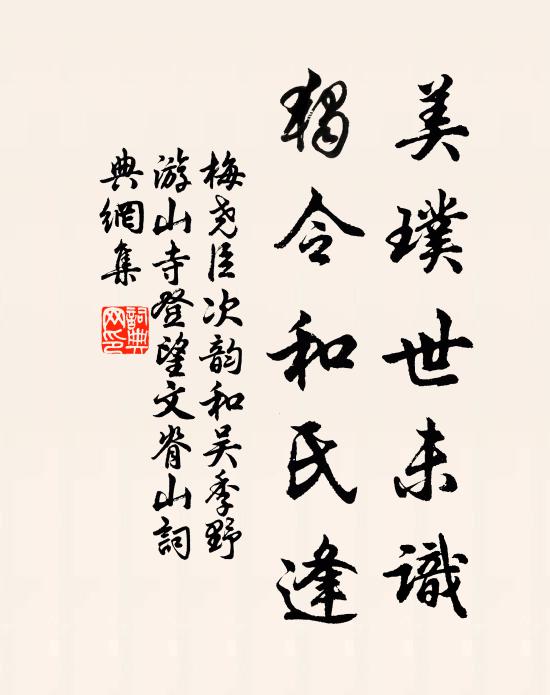 美璞世未識
獨令和氏逢
梅堯臣次韵和吴季野
游山寺登望文脊山詞
典網集
詞典网印